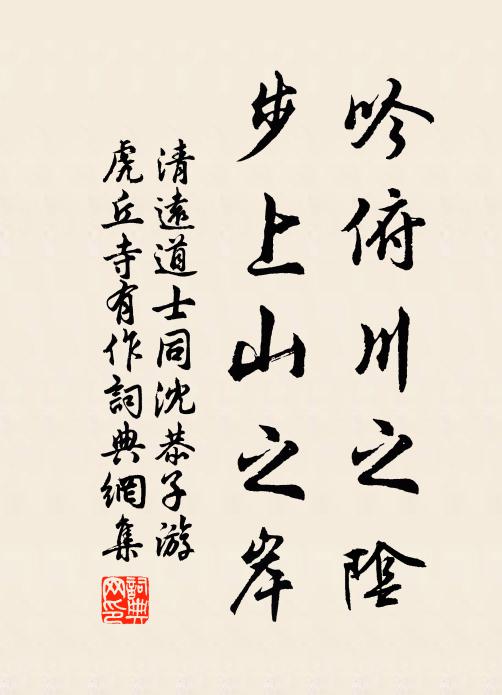 吟俯川之陰
步上山之岸
清遠道士同沈恭子游
虎丘寺有作詞典網集